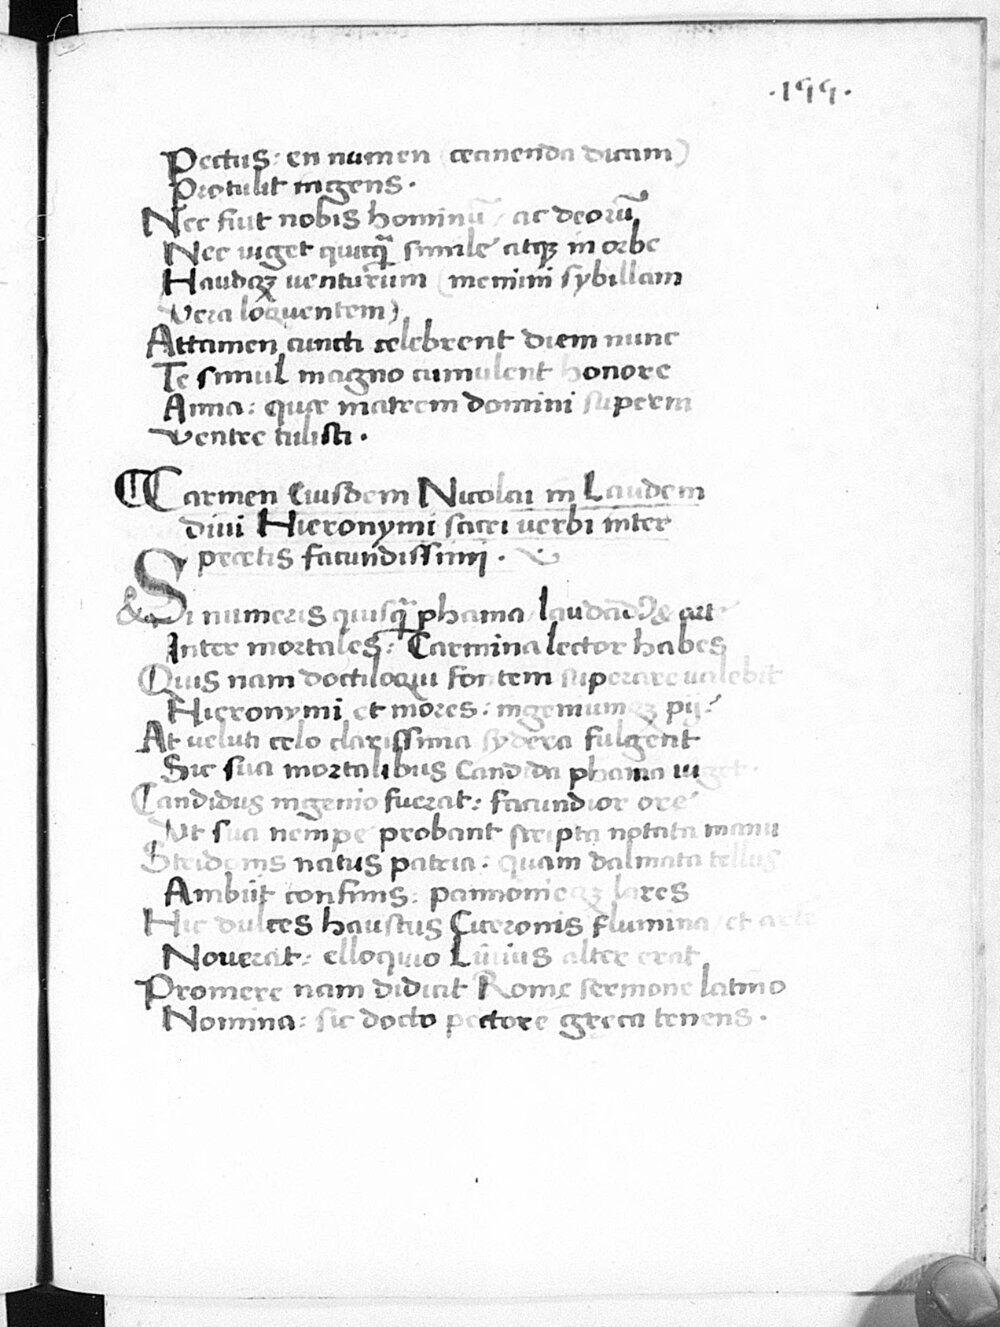 .199.
Pectus: en numen (tremenda dicam)
Protulit ingens.
Nec fiut nobis hominū / ac deorū
Nec uiget quicq̄ simile atqꝫ in orbe
Haudqꝫ venturum (memini sybillam
Vera loquentem)
Attamen cuncti celebrent diem nunc
Te simul magno cumulent honore
Anna: que matrem domini superni
ventre tulisti.
Carmen Eiusdem Nicolai in Laudem
diui Hieronymi sacri uerbi inter
pretis facundissimi.
Si numeris quisq̄ phama / laudadę & arte
Inter mortales: Carmina lector habes
Quis nam doctiloqui fontem superare ualebit
Hieronymi et mores: ingeniumqꝫ pij?
At ueluti celo clarissima sydera fulgent
Sic sua mortalibus Candida phama uiget.
Candidus ingenio fuerat: facundior ore
Vt sua nempe probant scripta notata manu
Stridonis natus patria: quam dalmata tellus
Ambijt confinis: pannonieqꝫ lares
Hic dulces haustus Ciceronis flumina / et arte
Nouerat: elloquio Liuius alter erat
Promere nam didicit Romę sermone latino
Nomina: sic docto pectore gręca tenens.